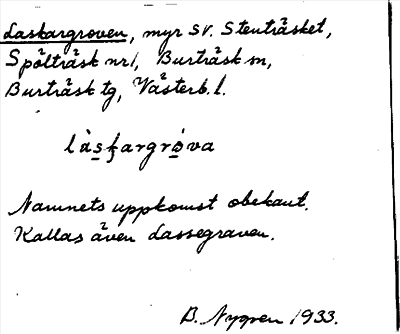 Laskargroven, myr SV. Stenträsket,
Spölträsk nr 1, Burträsk sn,
Burträsk tg, Västerb. l.
làskargrøva
Namnets uppkomst obekant.
Kallas även Lassegraven.
B. Nygren 1933.